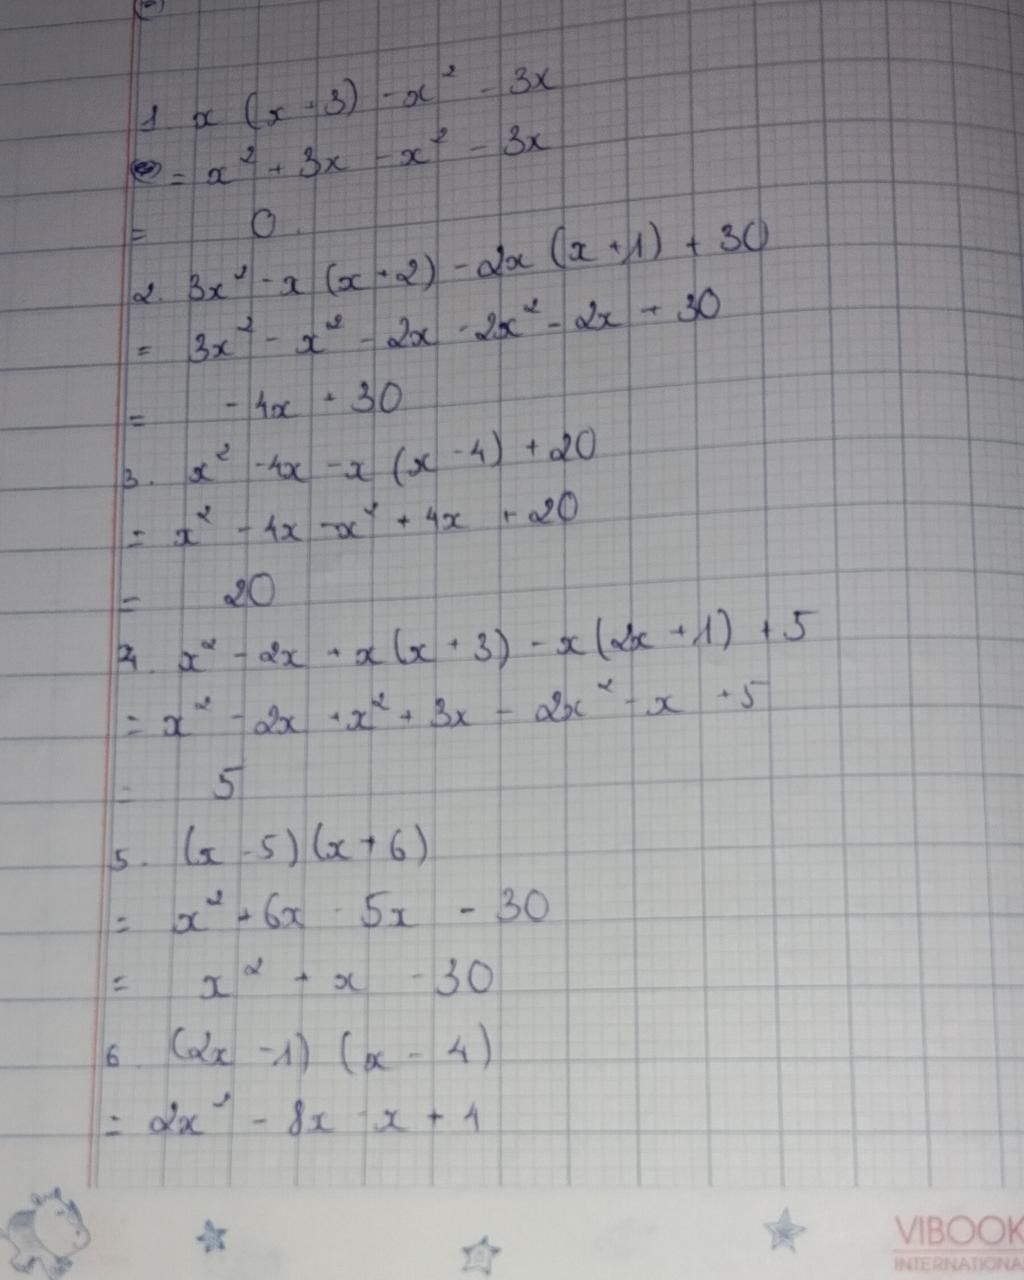 1 x (x + 3) - x² - 3x
= x² + 3x - x² - 3x
= 0
2. 3x² - x (x + 2) - 2x (x + 1) + 30
= 3x² - x² - 2x - 2x² - 2x + 30
= - 4x + 30
3. x² - 4x - x (x - 4) + 20
= x² - 4x - x² + 4x + 20
= 20
4. x² - 2x + x (x + 3) - x (2x + 1) + 5
= x² - 2x + x² + 3x - 2x² - x + 5
= 5
5. (x - 5) (x + 6)
= x² + 6x - 5x - 30
= x² + x - 30
6. (2x - 1) (x - 4)
= 2x² - 8x - x + 4
VIBOOK
INTERNATIONA